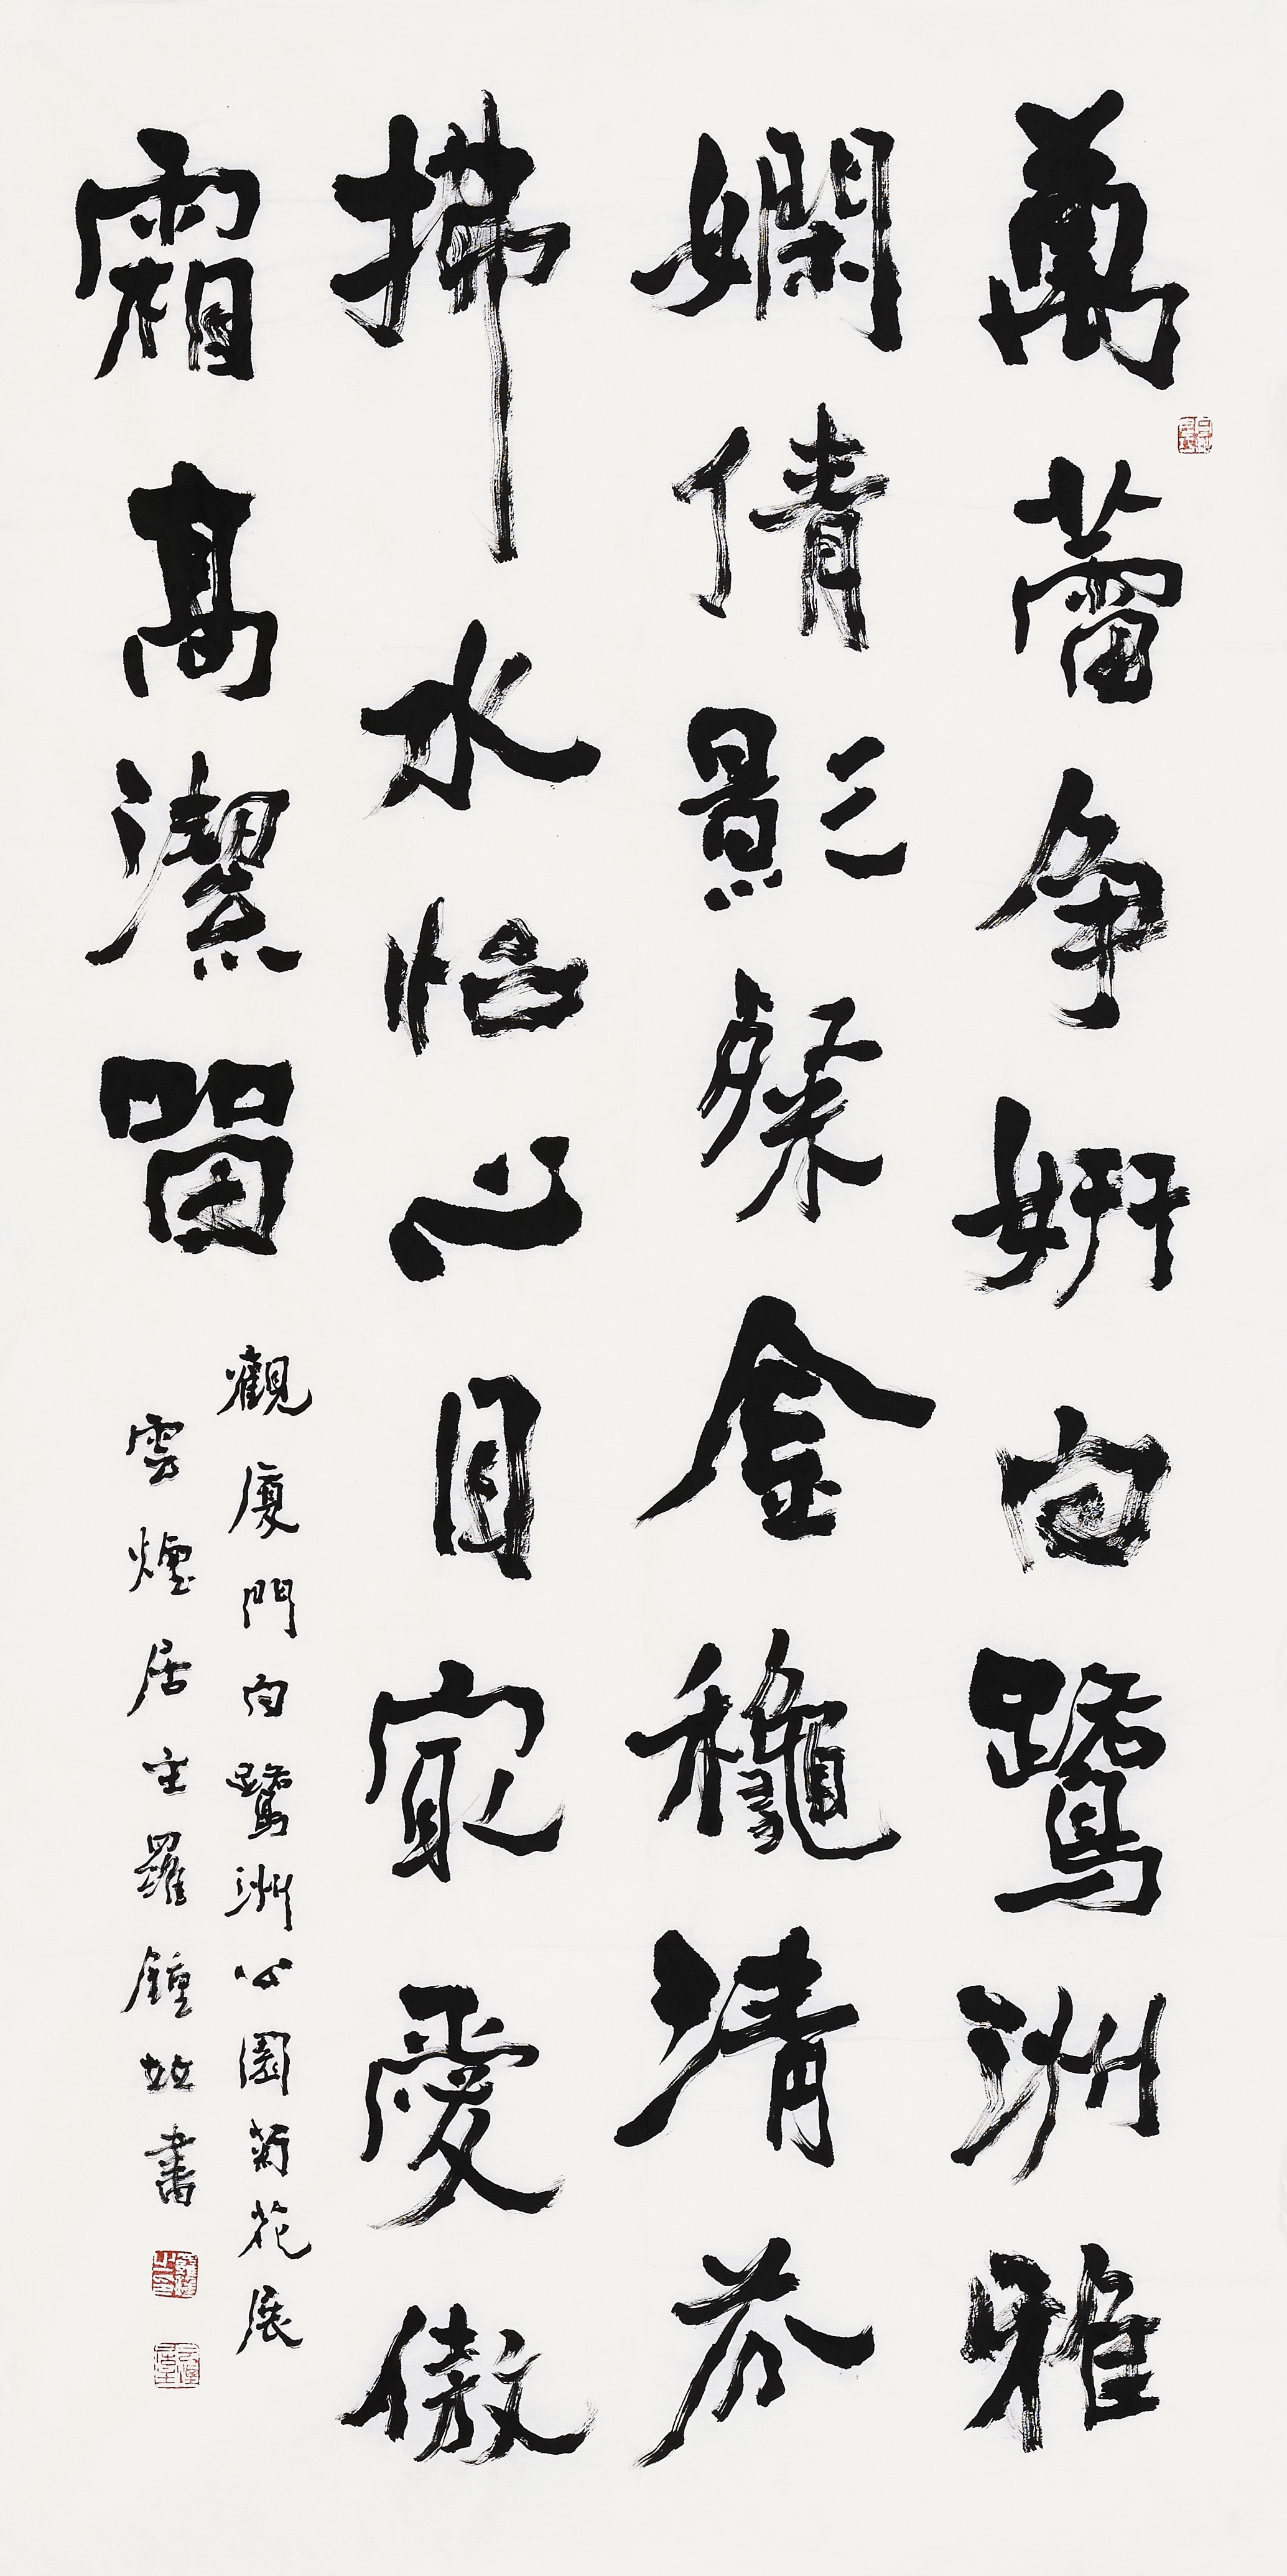 萬蕾争妍白鷺洲雅
嫻倩影粲金龝清芬
拂水怡心目最愛傲
霜高潔留
觀廈門白鷺洲公園菊花展
雲煙居主羅鍾竝書